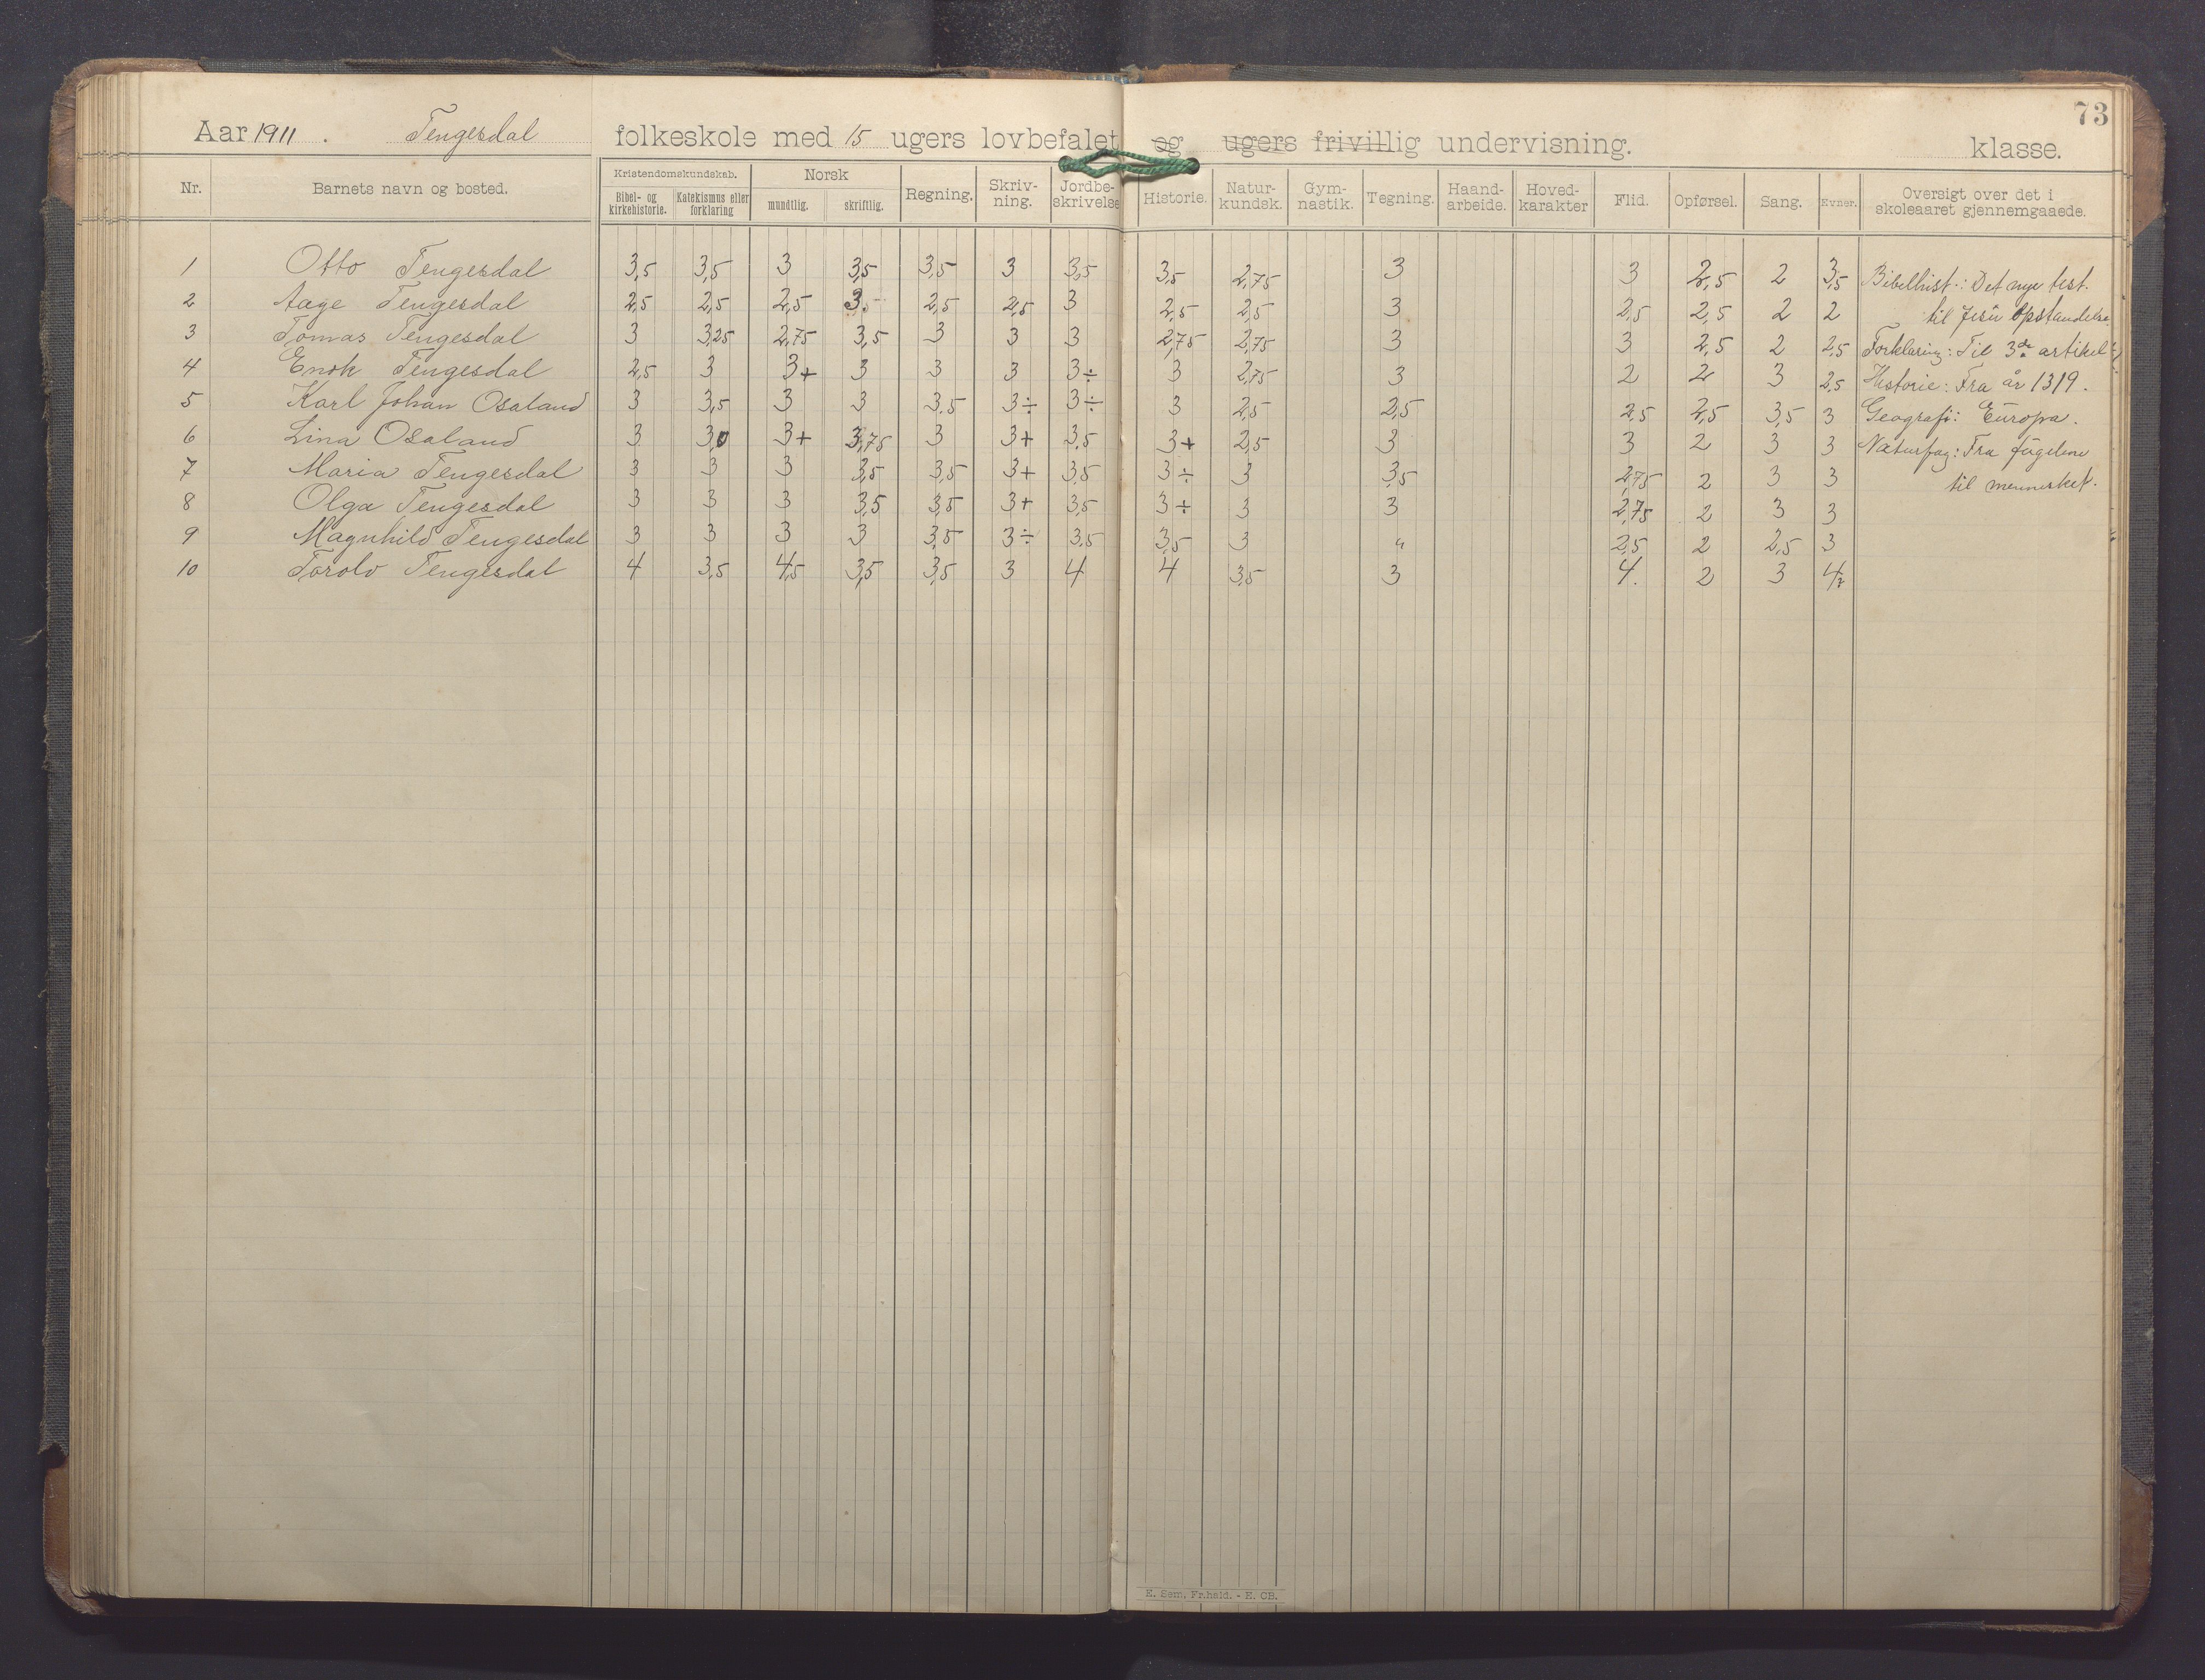 73
Aar 1911. Tengesdal folkeskole med 15 ugers lovbefalet og ugers frivillig undervisning. klasse.
Nr. Barnets navn og bosted. Kristendomskundskab. Bibel- og kirkehistorie. Katekismus eller forklaring Norsk mundtlig. skriftlig. Regning. Skriv-ning. Jordbe-skrivelse Historie. Natur-kundsk. Gym-nastik. Tegning. Haand-arbeide. Hoved-karakter Flid. Opførsel. Sang. Evner. Oversigt over det i skoleaaret gjennemgaaede.
1 Otto Tengesdal 3,5 3,5 3 3,5 3,5 3 3,5 3,5 2,75 3 3 2,5 2 3,5 Bibelhist.: Det nye test.
2 Aage Tengesdal 2,5 2,5 2,5 3. 2,5 2,5 3 2,5 2,5 3 2,5 2,5 2 2 til Jesu opstandelse.
3 Tomas Tengesdal 3 3,25 2,75 3,5 3 3 3 2,75 2,75 3 3 2,5 2 2,5 Forklaring: Til 3de artikel
4 Enok Tengesdal 2,5 3 3+ 3 3 3 3÷ 3 2,75 3 2 2 3 2,5 Historie: Fra år 1319.
5 Karl Johan Osaland 3 3,5 3 3 3,5 3÷ 3÷ 3 2,5 2,5 2,5 2,5 3,5 3 Geografi: Europa.
6 Lina Osaland 3 3,0 3+ 3,75 3 3+ 3,5 3+ 2,5 3 3 2 3 3 Naturfag: Fra fuglene
7 Maria Tengesdal 3 3 3 3,5 3,5 3+ 3,5 3÷ 3 3,5 2,75 2 3 3 til mennesket.
8 Olga Tengesdal 3 3 3 3,5 3,5 3+ 3,5 3÷ 3 3 2,75 2 3 3
9 Magnhild Tengesdal 3 3 3 3 3,5 3÷ 3,5 3,5 3 " 2,5 2 2,5 3
10 Torolv Tengesdal 4 3,5 4,5 3,5 3,5 3 4 4 3,5 3 4. 2 3
E. Sem, Fr.hald. - E. CB.